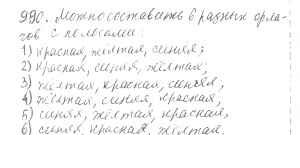 990. Можно составить 6 разных фла-
гов с полосами:
1) красная, жёлтая, синяя;
2) красная, синяя, жёлтая;
3) жёлтая, красная, синяя;
4) жёлтая, синяя, красная;
5) синяя, жёлтая, красная;
6) синяя, красная, жёлтая.